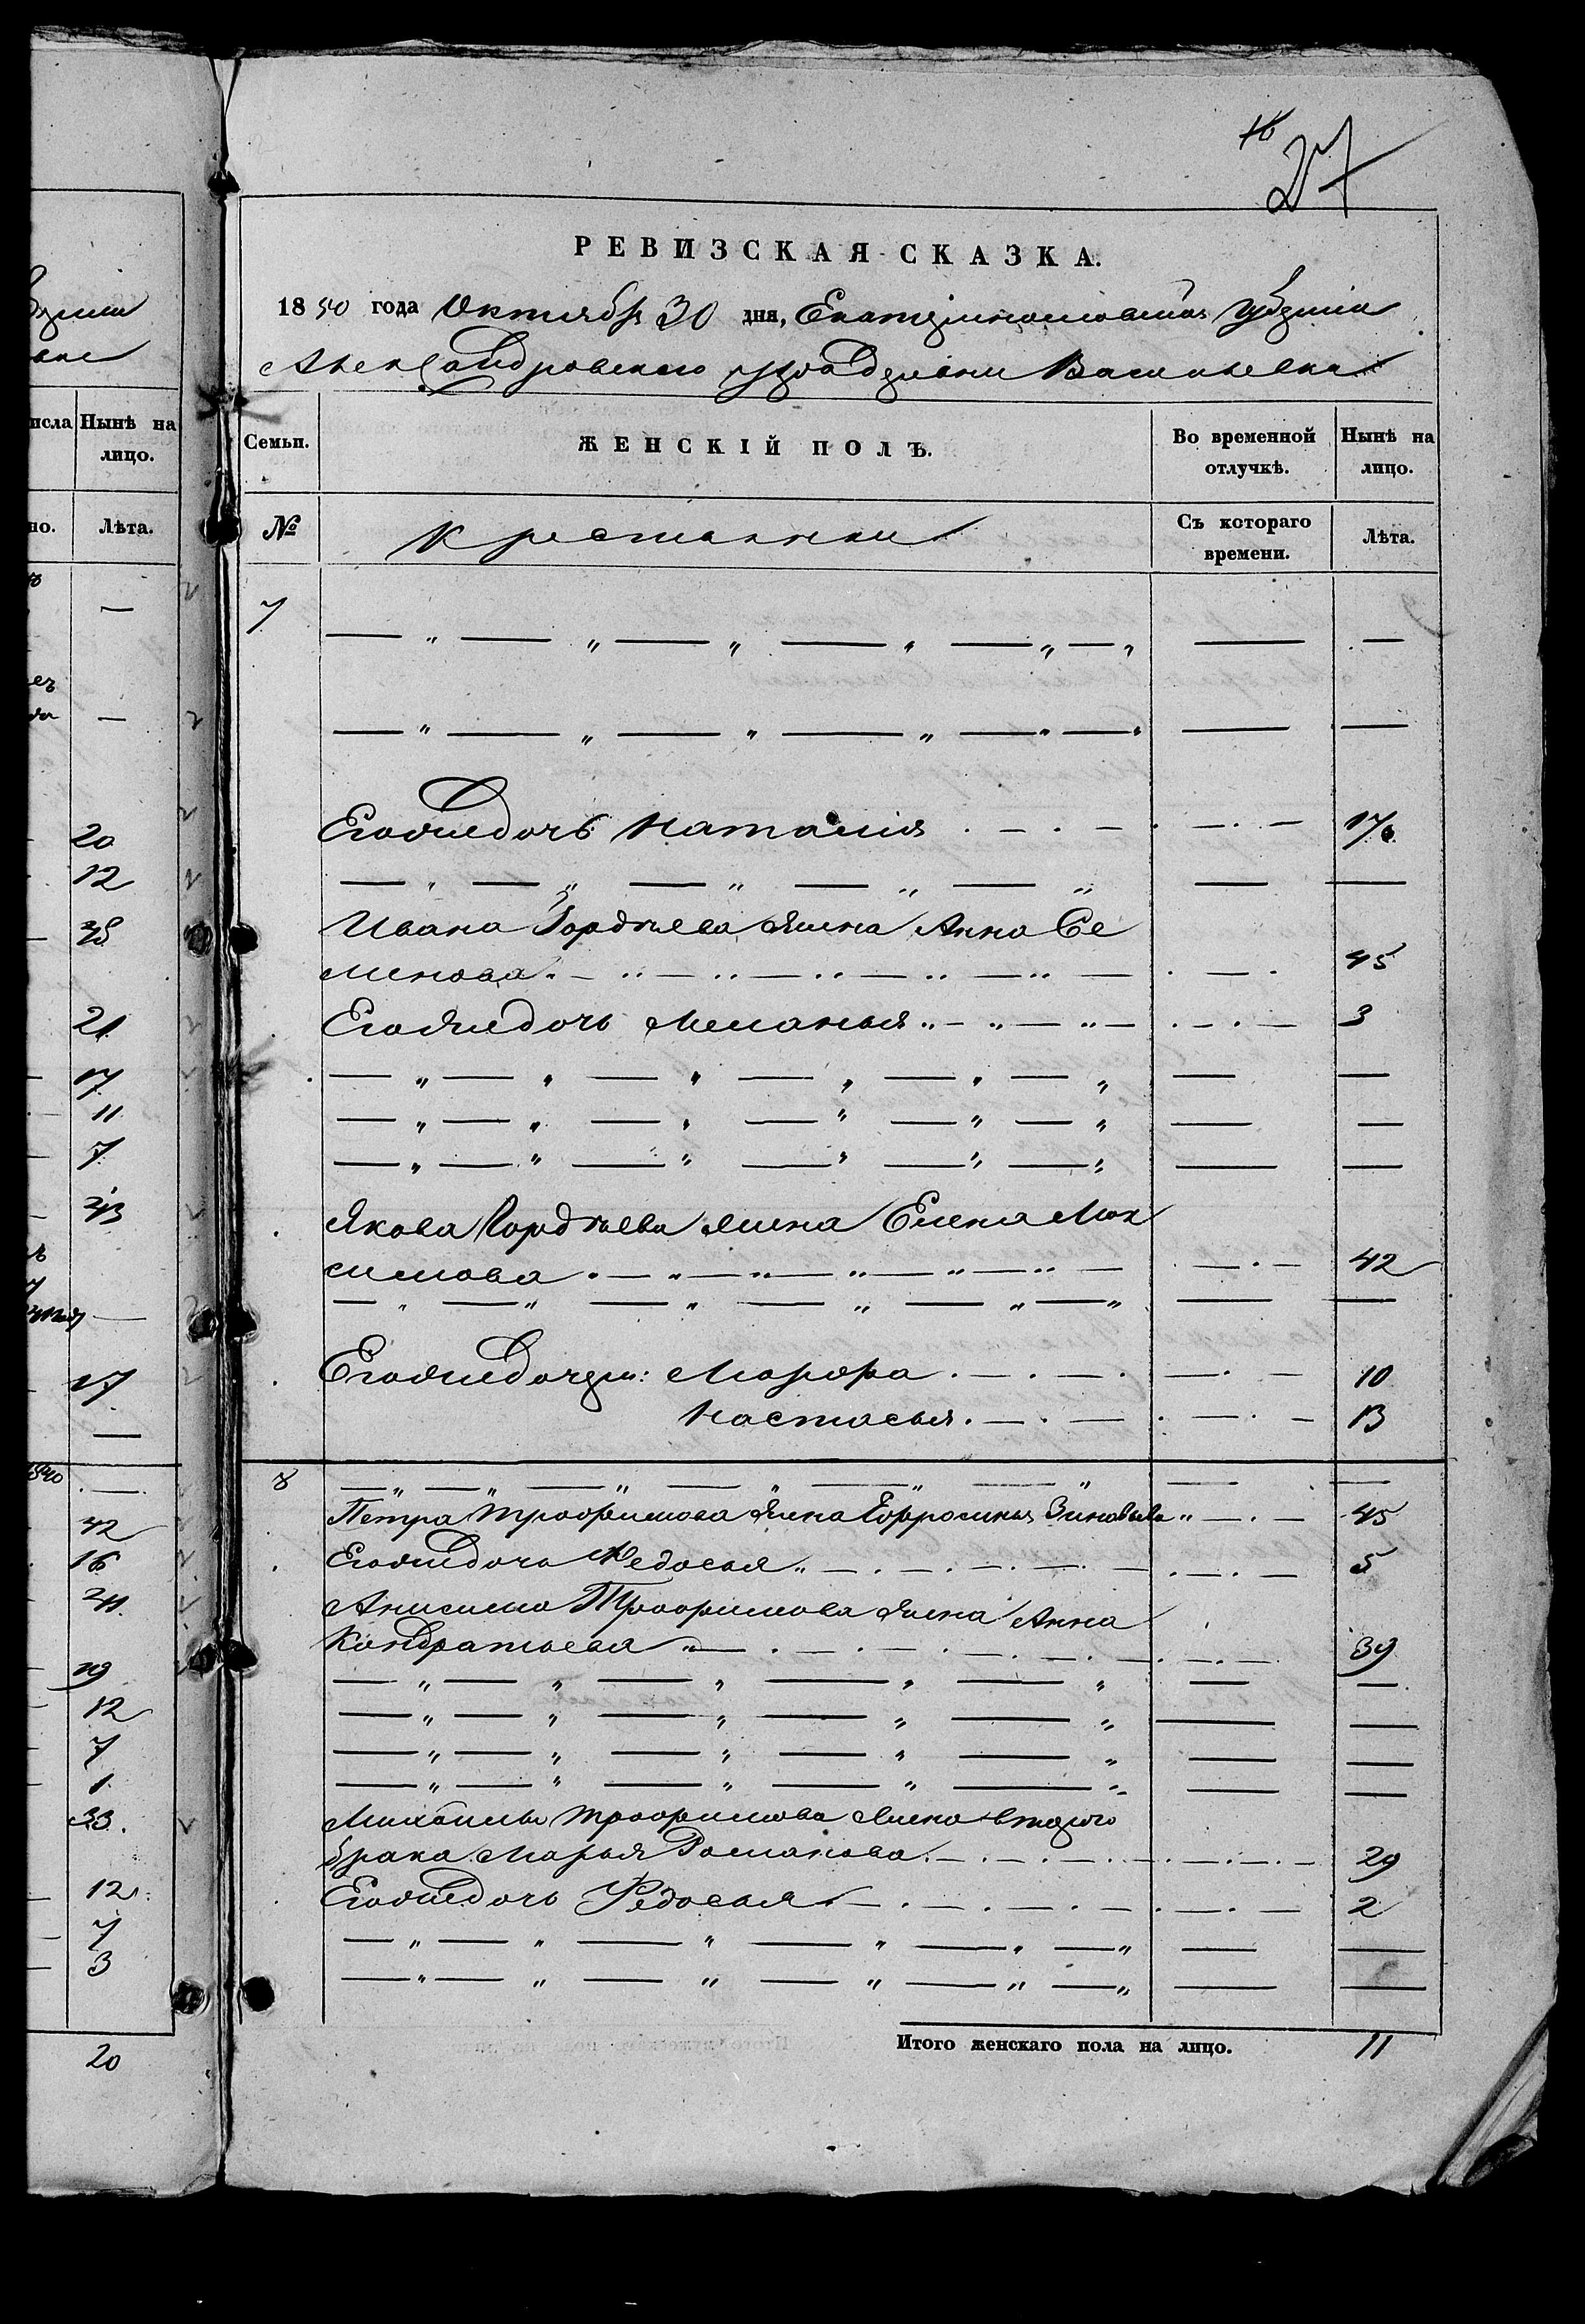 16
27
РЕВИЗСКАЯ СКАЗКА.
1850 года Октября 30 дня, Екатеринославской губернiи
Александровского уезда деревни Васильевки
исла Нынѣ на лицо.
но. Лѣта.
Семьи. ЖЕНСКІЙ ПОЛЪ. Во временной отлучкѣ. Нынѣ на лицо.
№ Крестьянки Съ котораго времени. Лѣта.
7 — " — " — " — " — " — " — —
— " — " — " — " — " — " — —
Его жъ дочь Наталія . — . — . — . — 17
— " — " — " — " — " — —
Ивана Гордѣева жена Анна Се
менова . — " — " — " — " — " — . — . 45
Его жъ дочь Меланья " — " — " — . — . — 3
— " — " — " — " — " — " — —
— " — " — " — " — " — " — —
— " — " — " — " — " — " — —
Якова Гордѣева жена Елена Мак
симова . — " — " — " — " — " — . — . — 42
— " — " — " — " — " — " — —
Его жъ дочери: Марфа . — . — . — . — 10
Настасья . — . — . — . — 13
8 — " — " — " — " — " — " — —
Петра Трофимова жена Ефросинья Зиновьева " — . — 45
Его жъ дочь Федосья " — . — . — . — . — . — 5
Анисима Трофимова жена Анна
Кондратьева " — . — . — . — . — . — . — 39
— " — " — " — " — " — —
— " — " — " — " — " — —
— " — " — " — " — " — —
— " — " — " — " — " — —
Михайлы Трофимова жена втораго
брака Марья Романова . — . — . — . — . — . — 29
Его жъ дочь Федосья — . — . — . — . — . — 2
— " — " — " — " — " — " — —
— " — " — " — " — " — " — —
Итого женскаго пола на лицо. 11
20
12
21
17
11
7
17
1840
42
16
19
12
7
1
33.
12
7
3
20